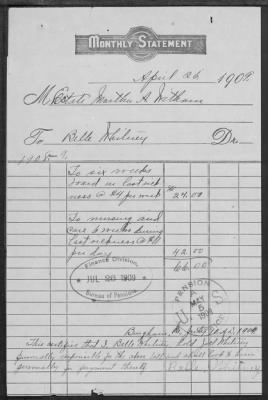 MONTHLY STATEMENT
April 26 1909.
M Estate Martha A. Witham
To Belle Whitney Dr.
1908 & 9.
To six weeks
board in last sick
ness @ $4 per week 24.00
To nursing and
care 6 weeks during
last sickness @ $1
per day 42.00
66.00
Finance Division,
JUL 26 1909
Bureau of Pensions.
PENSION
U.S.
MAY 5 1909
Bingham, Me.
This certifies that I, Belle Whitney, hold
personally responsible for the above bill and shall look to him
personally for payment
Belle Whitney